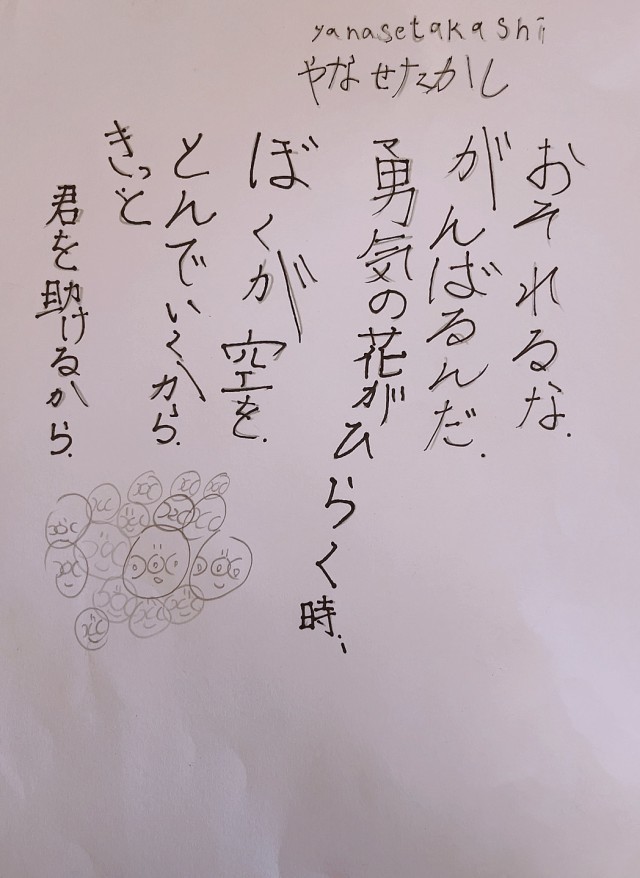 yanasetakashi
やなせたかし
おそれるな.
がんばるんだ.
勇気の花がひらく時.
ぼくが空を.
とんでいくから.
きっと
君を助けるから.